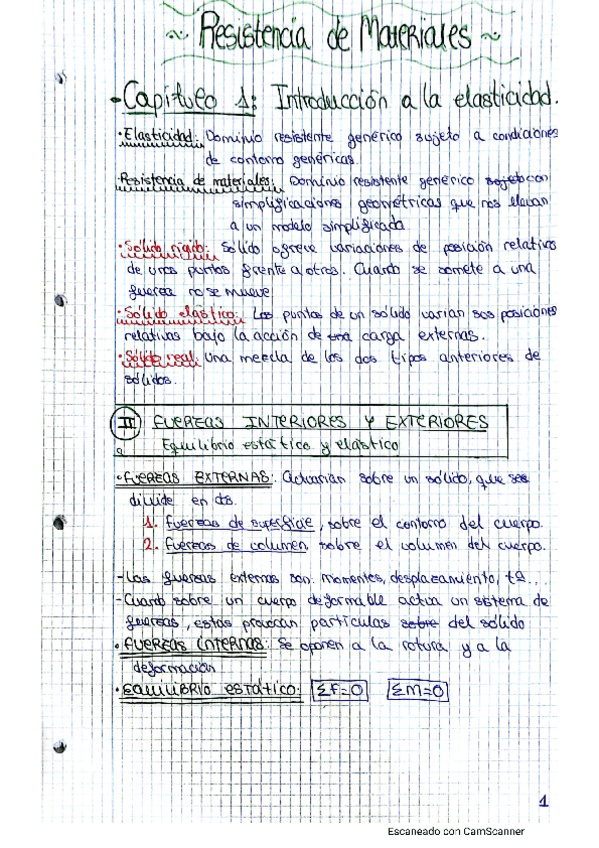 ~ Resistencia de Materiales ~
- Capítulo 1: Introducción a la elasticidad.
· Elasticidad: Dominio resistente genérico sujeto a condiciones
de contorno genéricas.
Resistencia de materiales: Dominio resistente generico sujeto con
simplificaciones geométricas que nos llevan
a un modelo simplificado
· Sólido rígido: Sólido ofrece variaciones de posición relativa
de unos puntos frente a otros. Cuando se somete a una
fuerza no se mueve
· Sólido elástico: Los puntos de un sólido varian sus posiciones
relativas bajo la acción de una carga externas.
· Sólido real: Una mezcla de los dos tipos anteriores de
sólidos.
II FUERZAS INTERIORES Y EXTERIORES
Equilibrio estático y elástico
· FUERZAS EXTERNAS: Actuarian sobre un sólido, que se
divide en ds.
1. Fuerzas de superficie, sobre el contorno del cuerpo.
2. Fuerzas de volumen sobre el volumen del cuerpo.
- Las fuerzas externas son: momentos, desplazamiento, tª...
- Cuando sobre un cuerpo deformable actua un sistema de
fuerzas, estas provocan partículas sobre del sólido
· FUERZAS INTERNAS: Se oponen a la rotura y a la
deformación
· EQUILIBRIO ESTÁTICO: ΣF=0 ΣM=0
1
Escaneado con CamScanner